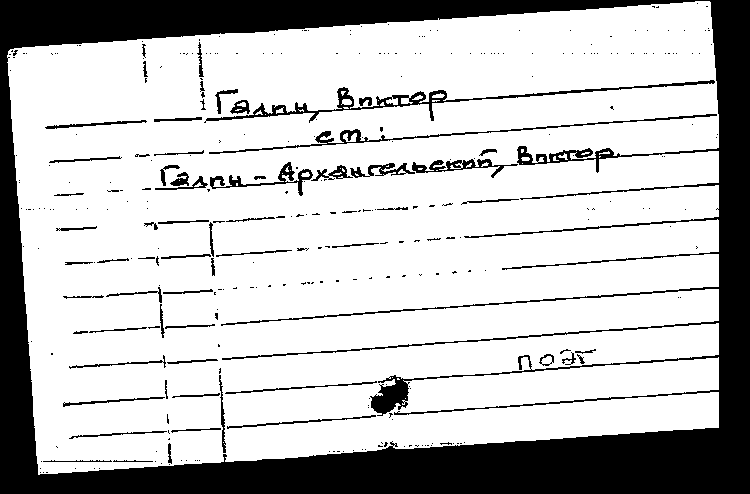 Галин, Виктор
см.:
Галин-Архангельский, Виктор
поэт